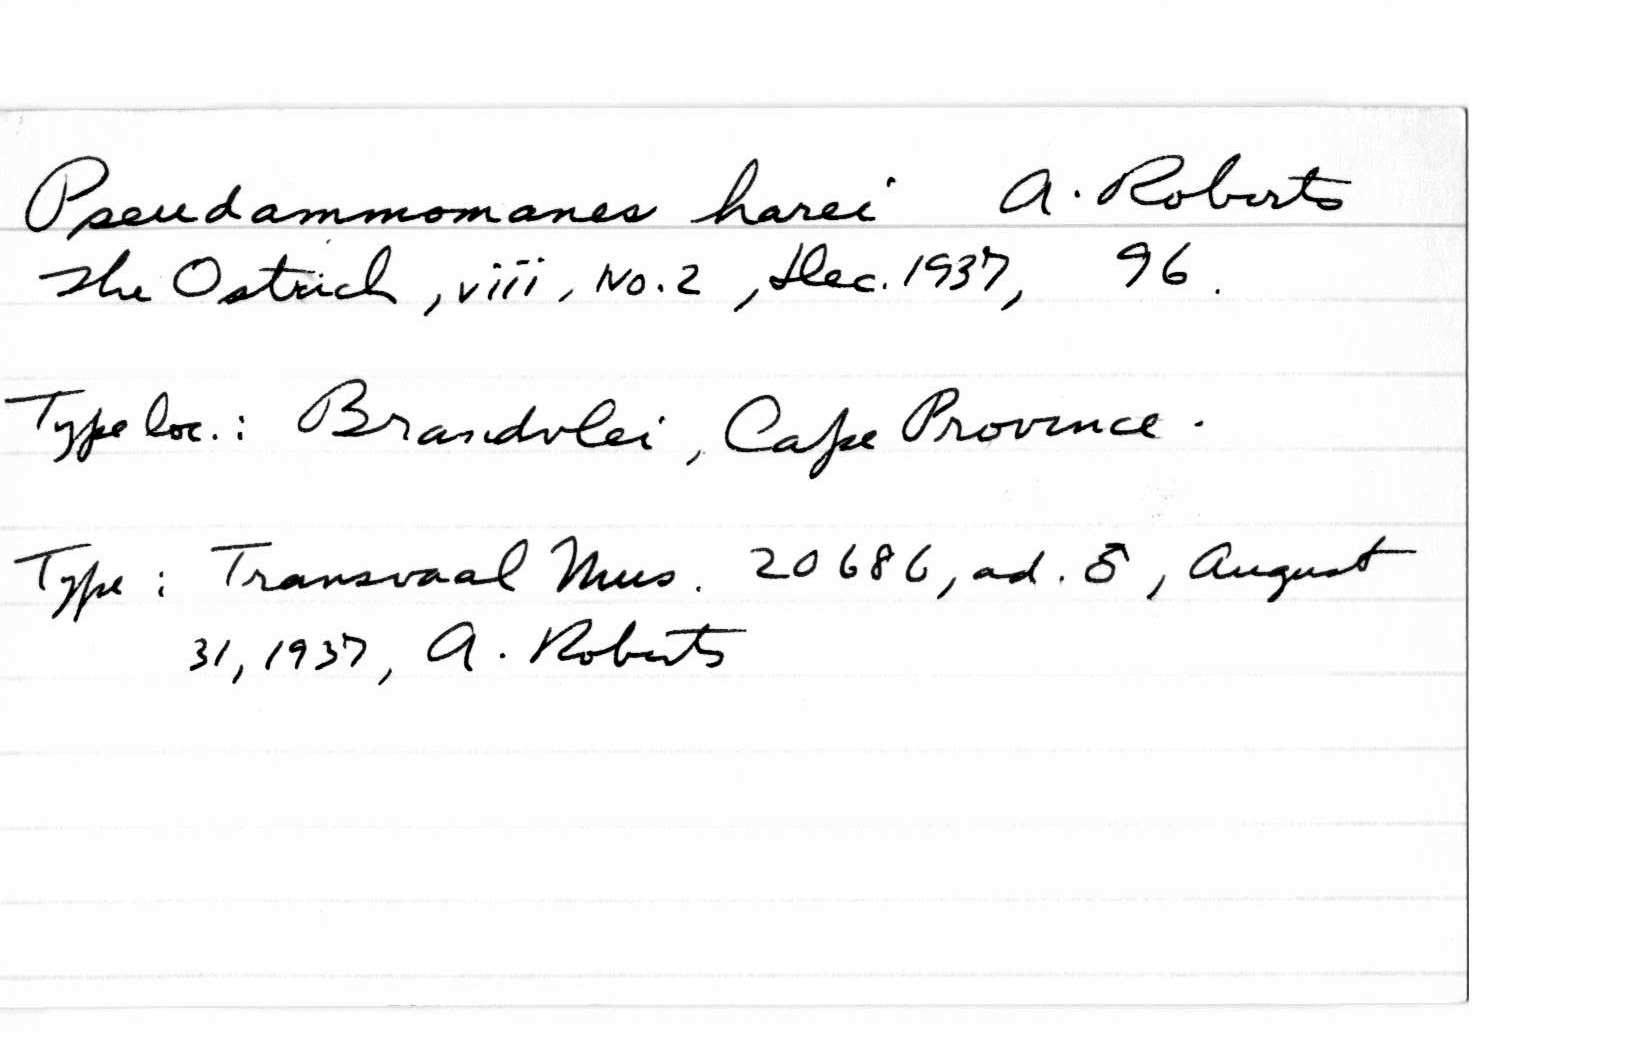 Pseudammomanes harei A. Roberts
The Ostrich, viii, No. 2, Dec. 1937, 96.
Type loc.: Brandvlei, Cape Province.
Type: Transvaal Mus. 20686, ad. ♂, August
31, 1937, A. Roberts